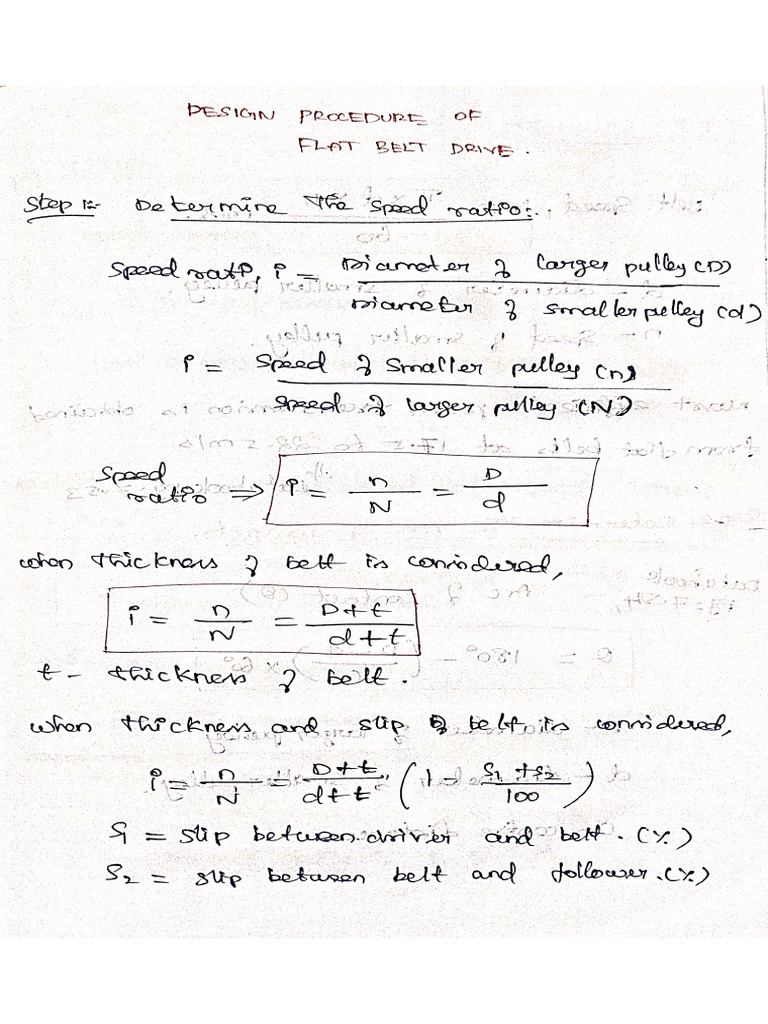 DESIGN PROCEDURE OF
FLAT BELT DRIVE.
Step 1:- Determine the speed ratio:-
Speed ratio, i = Diameter of larger pulley (D) / Diameter of smaller pulley (d)
i = Speed of smaller pulley (n) / Speed of larger pulley (N)
Speed ratio ⇒ i = n/N = D/d
when thickness of belt is considered,
i = n/N = D+t / d+t
t - thickness of belt.
when thickness and slip of belt is considered,
i = n/N = D+t / d+t (1 - S1 + S2 / 100)
S1 = slip between driver and belt. (%)
S2 = slip between belt and follower. (%)